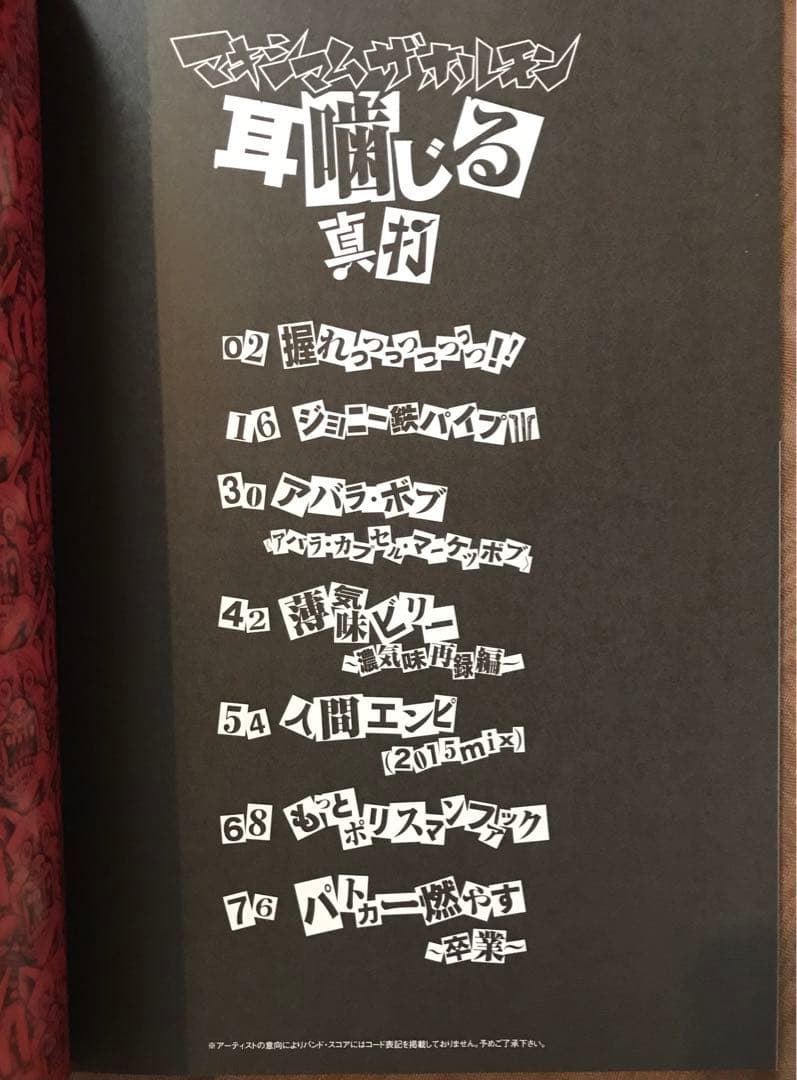 マキシマム ザ ホルモン
耳噛じる
真打
02 握れっっっっっっ!!
16 ジョニー鉄パイプIII
30 アバラ・ボブ
(アバラ・カプセル・マーケッボブ)
42 薄気味ビリー
~濃気味再録編~
54 人間エンピ
(2015mix)
68 もっとポリスマンファック
76 パトカー燃やす
~卒業~
※アーティストの意向によりバンド・スコアにはコード表記を掲載しておりません。予めご了承下さい。